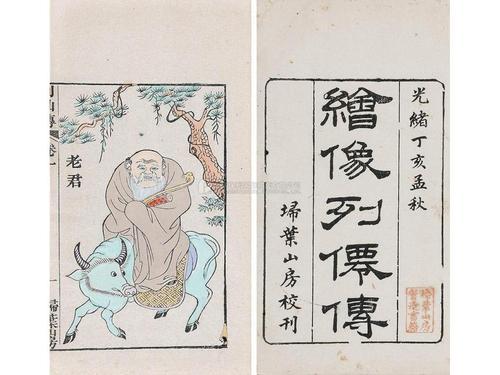 光緒丁亥孟秋
繪像列僊傳
埽葉山房校刊
老君
卷一
一